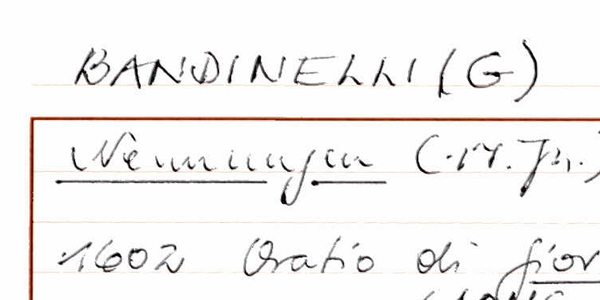 BANDINELLI (G)
Nennungen (17. Jh.)
1602 Oratio di